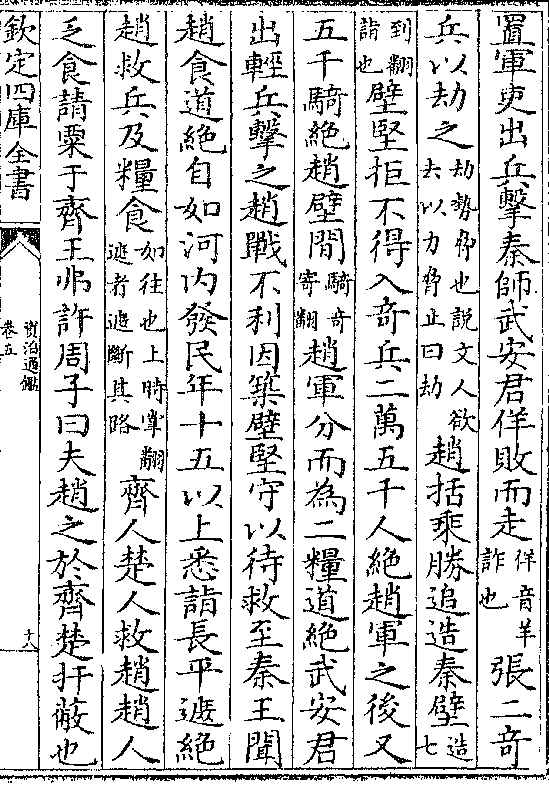 置軍吏出兵擊秦師武安君佯敗而走佯音羊詐也張二竒
兵以劫之劫勢脅也説文人欲去以力脅止曰劫趙括乘勝追造秦壁造七
到翻詣也壁堅拒不得入竒兵二萬五千人絶趙軍之後又
五千騎絶趙壁間騎竒寄翻趙軍分而為二糧道絶武安君
出輕兵擊之趙戰不利因築壁堅守以待救至秦王聞
趙食道絶自如河内發民年十五以上悉詣長平遮絶
趙救兵及糧食如往也上時掌翻遮者遮斷其路齊人楚人救趙趙人
乏食請粟于齊王弗許周子曰夫趙之於齊楚扞蔽也
欽定四庫全書
資治通鑑
卷五
十八